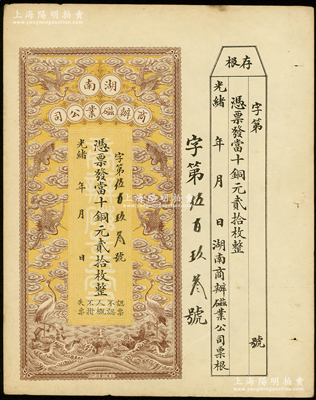 上海陽明拍賣有限公司
存根
字第 號
憑票發當十銅元貳拾枚整
光緒 年 月 日湖南商辦磁業公司票根
字第伍百玖叁號
湖南
商辦磁業公司
字第伍百玖叁號
憑票發當十銅元貳拾枚整
光緒 年 月 日
認票
不認
人概
不掛
失票